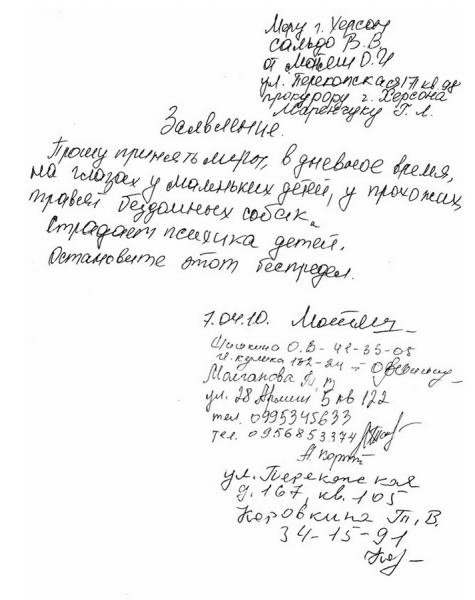 Меру г. Херсон
Сальдо В.В
от Мотяш О.И
ул. Перекопская 171 кв 98
прокурору г. Херсона
Г. Л.
Заявление.
Прошу принять меры, в дневное время,
на глазах у маленьких детей, у прохожих,
травят бездомных собак.
Страдает психика детей.
Остановите этот беспредел.
7.04.10. Мотяш
Шишкина О.В - 42-35-05
182-24
Молганова
ул. 28 Армии 5 кв 122
тел. 0995345633
тел. 0956853374
ул. Перекопская
д. 167, кв. 105
Коровкина В.
34-15-91